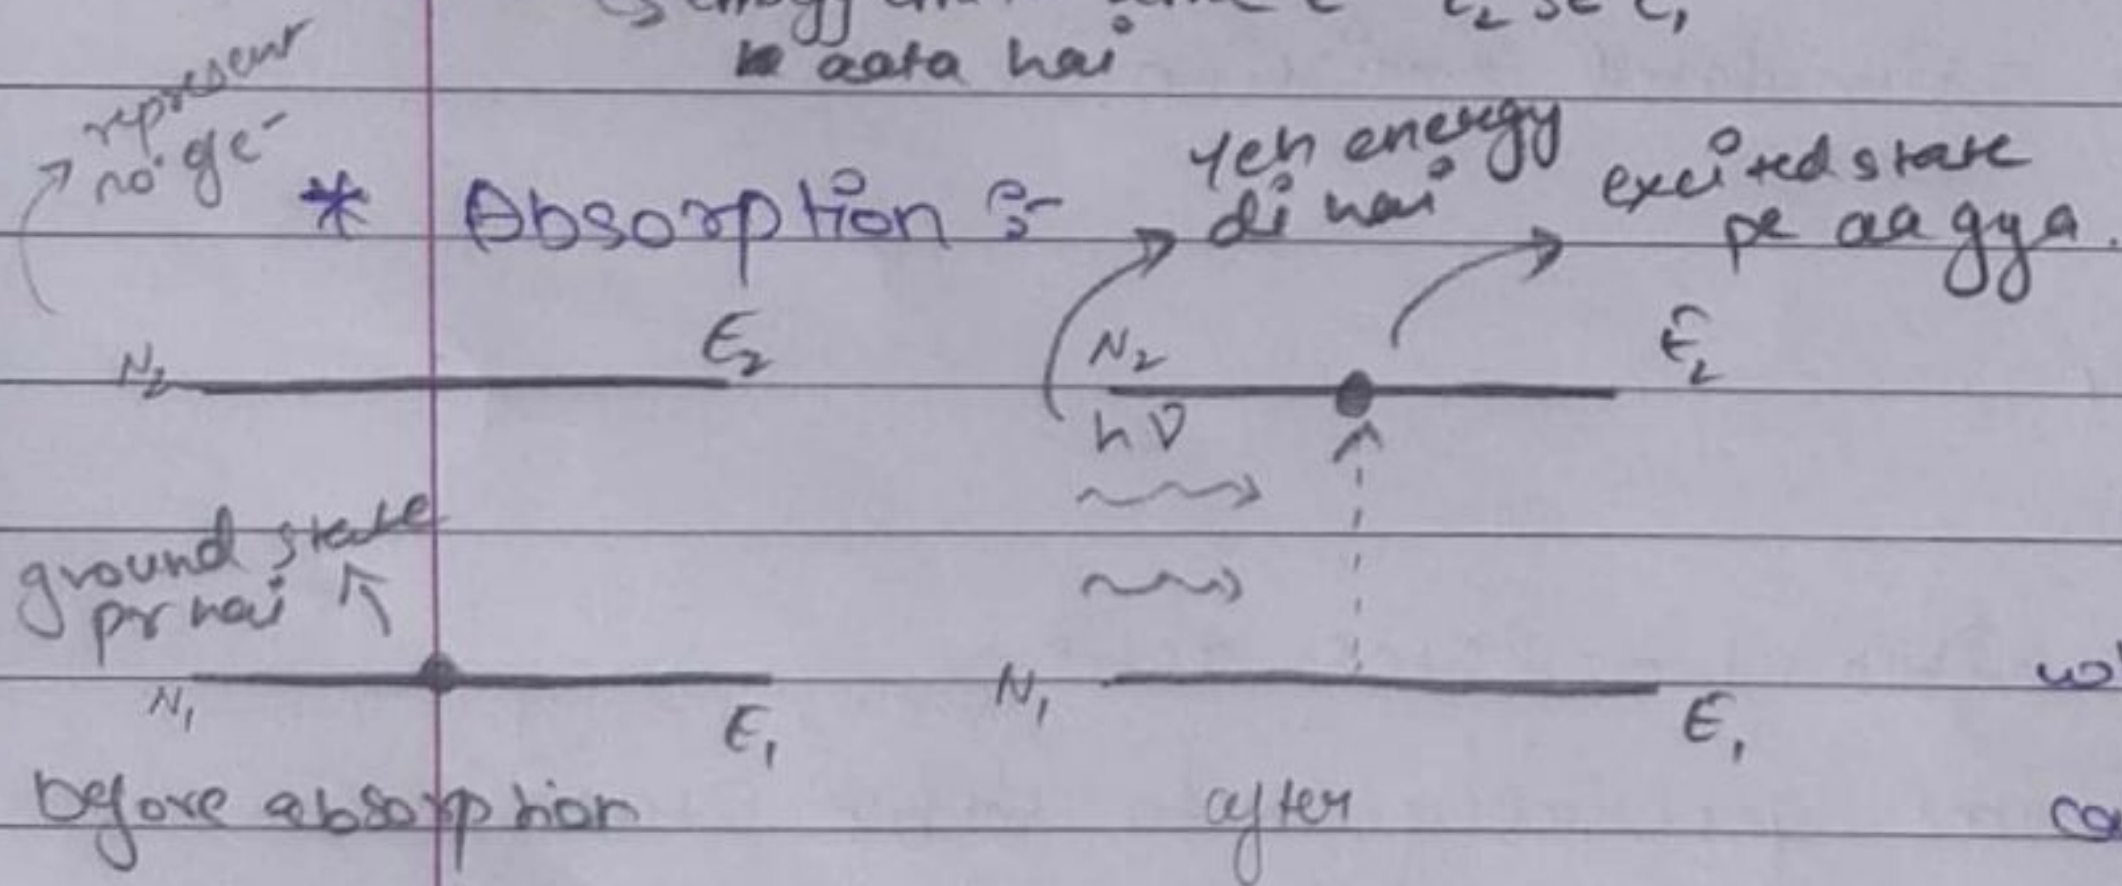 e⁻ E₂ se E₁
aata hai
represent
no. of e⁻
* Absorption :-
Yeh energy
di hai
excited state
pe aa gya.
N₂ E₂
N₂ E₂
hν
ground state
pr hai
N₁ E₁
N₁ E₁
before absorption
after